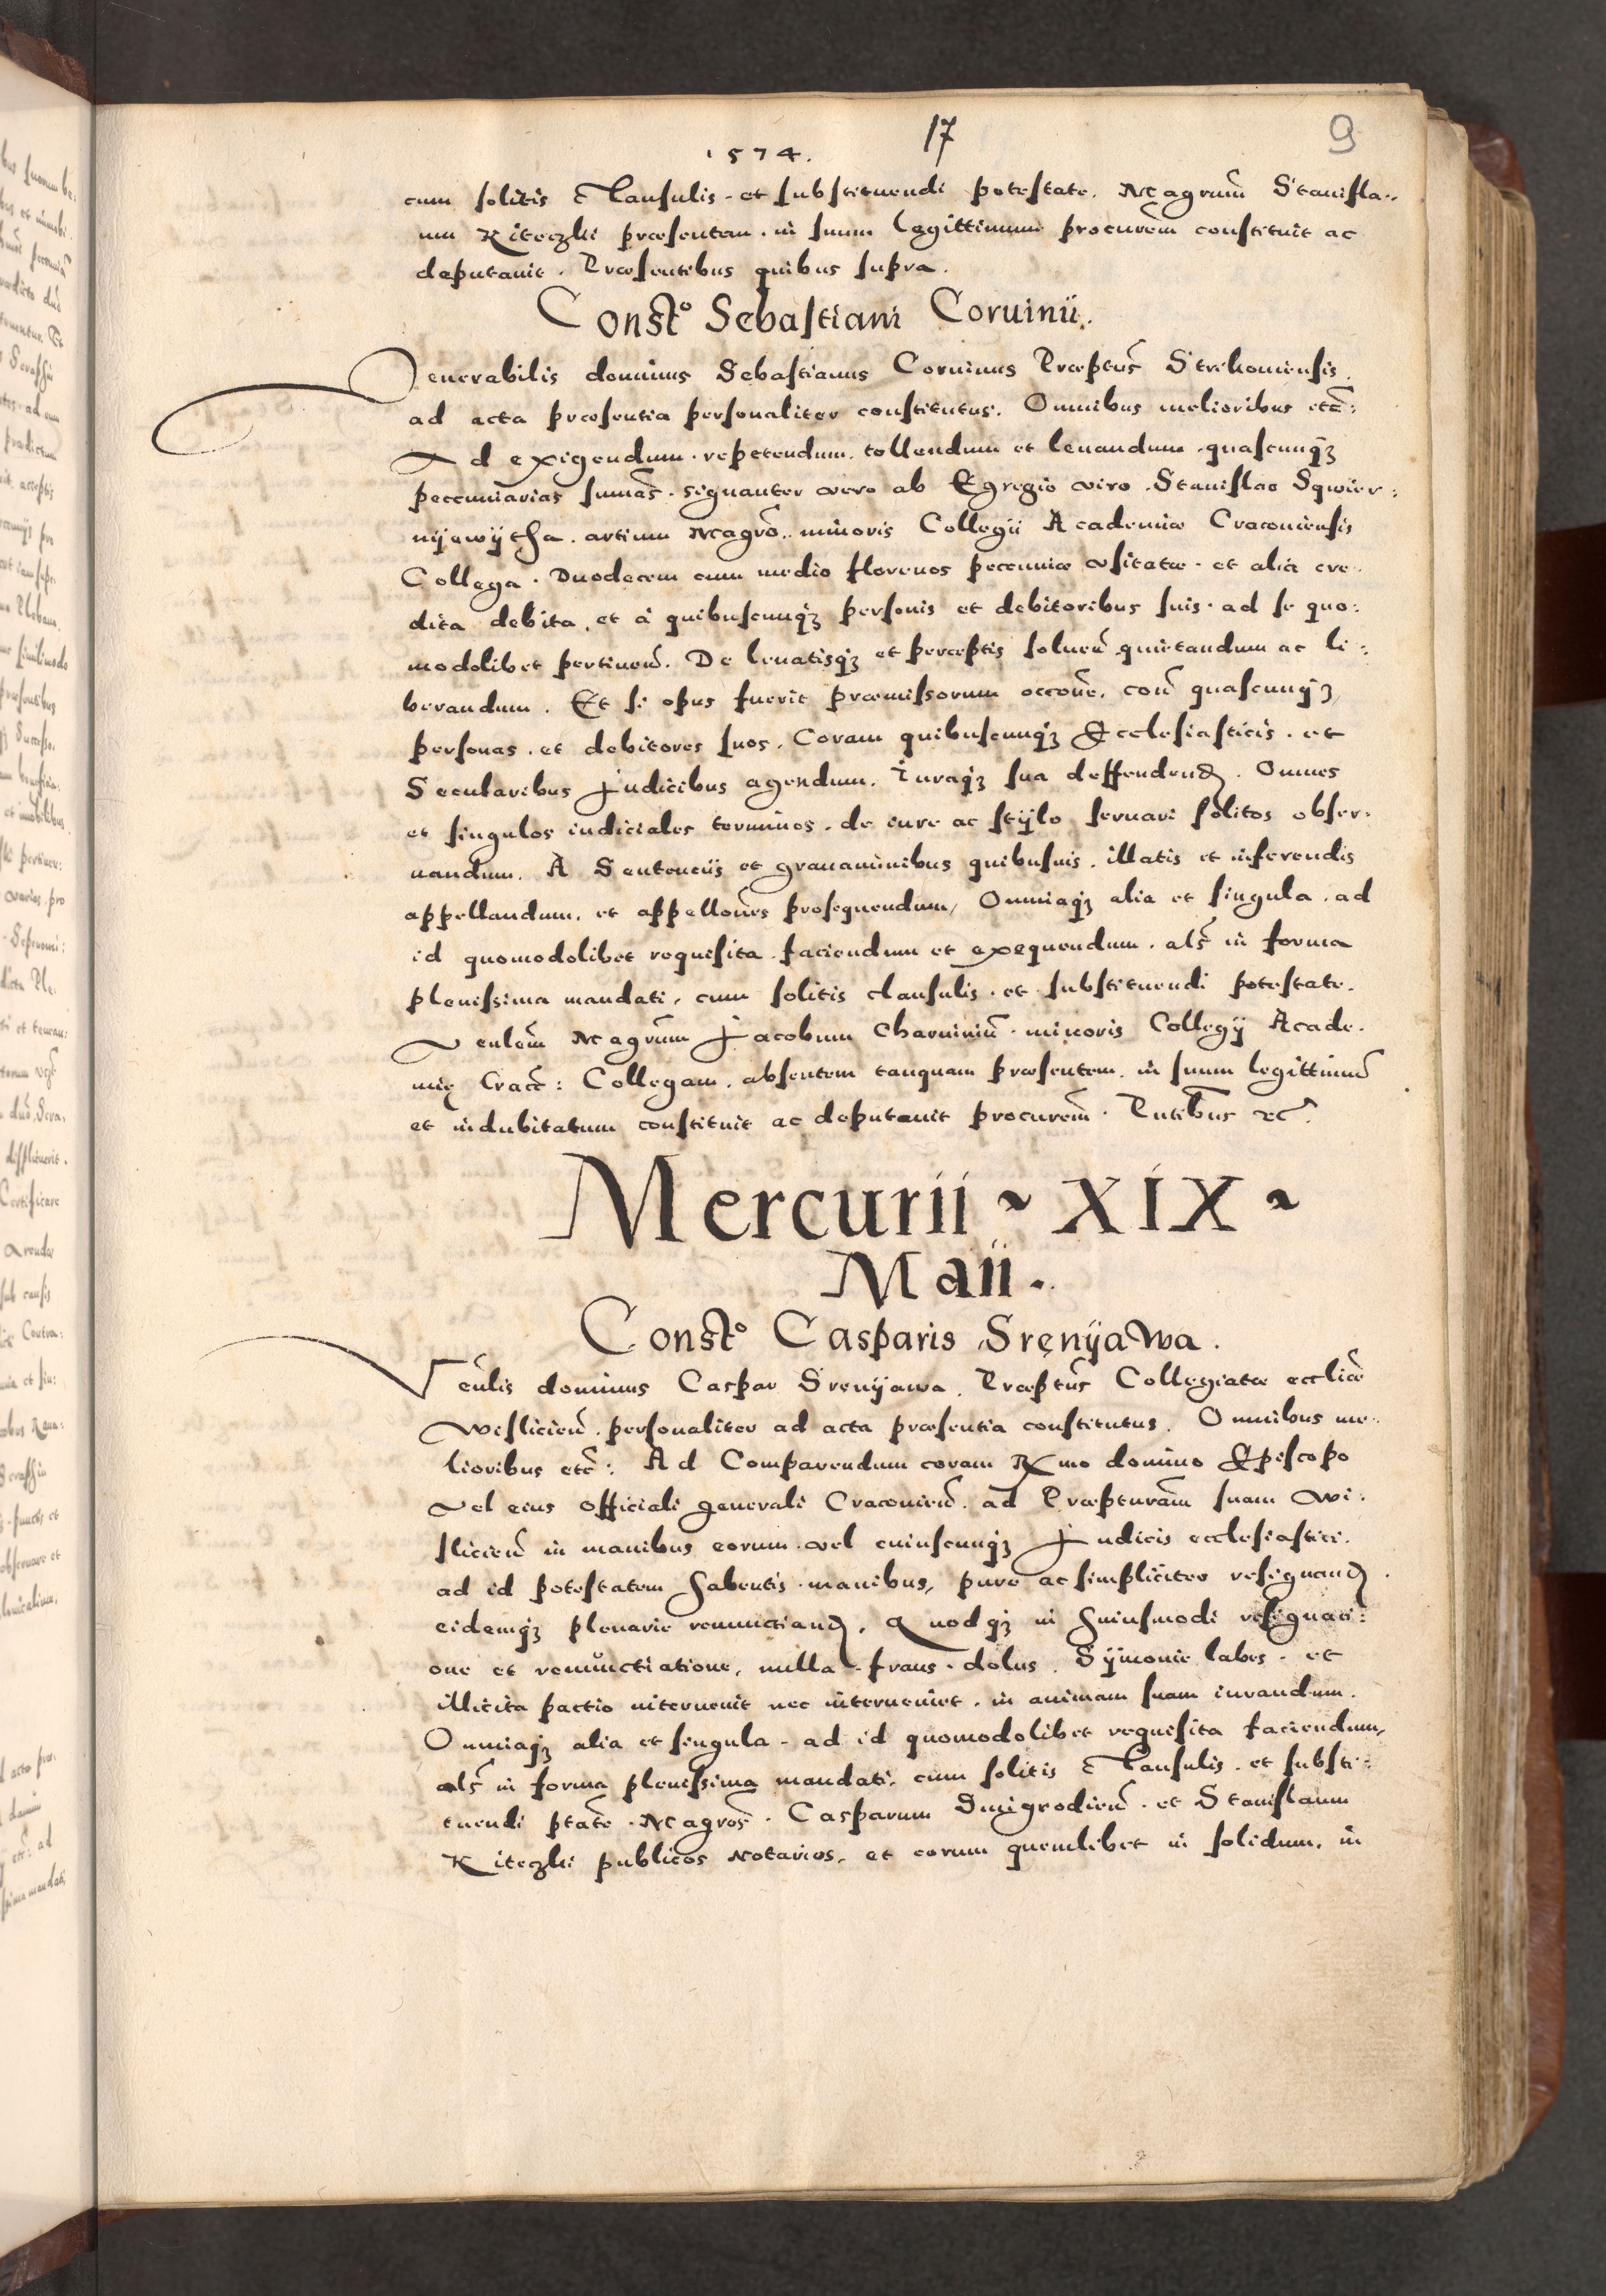 17
9
1574.
cum solitis Clausulis. et substituendi potestate. Magrum̃ Stanisla..
um Kiteczki præsentem. in suum Legittimum procurem̃ constituit ac
deputauit. Præsentibus quibus supra.
Const.º Sebastiani Coruinii.
Venerabilis dominus Sebastianus Coruinus Præptus̃ Strikouiensis.
ad acta præsentia personaliter constitutus. Omnibus melioribus etc̃:
Ad exigendum. repetendum. tollendum et leuandum. quascunq3
peccuniarias sumas̃. signanter vero ab Egregio viro. Stanislao Sqwier:
nijewijtha. artium Magrõ.. minoris Collegii Academiæ Cracouiensis
Collega. Duodecem cum medio florenos peccuniæ vsitatæ. et alia cre..
dita debita, et à quibuscunq3 personis et debitoribus suis. ad se quo:
modolibet pertineñ. De leuatisq3 et perceptis solueñ quietandum ac li:
berandum. Et si opus fuerit præmissorum occone̾. coñ quascunq3
personas. et debitores suos. Coram quibuscunq3 Ecclesiasticis. et
Secularibus Judicibus agendum. Iuraq3 sua deffendend̃. Omnes
et singulos iudiciales terminos. de iure ac stijlo seruari solitos obser:
uandum. A Sentenciis et grauaminibus quibusuis. illatis et inferendis
appellandum. et appellones̃ prosequendum, Omniaq3 alia et singula. ad
id quomodolibet requisita faciendum et exequendum. als̃ in forma
plenissima mandati, cum solitis clausulis. et substituendi potestate.
Venlem̃ Magrum̃ Jacobum Charuiniũ. minoris Collegij Acade.
mię Crac̃: Collegam. absentem tanquam præsentem. in suum legittimũ
et indubitatum constituit ac deputauit procurem̃. Pntibus̃ etc̃.
Mercurii ~ XIX ~
Maii.
Const.º Casparis Sręnijawa.
Venlis̃ dominus Caspar Srenijawa. Præptus̃ Collegiatæ eccliæ̃
Wislicieñ. personaliter ad acta præsentia constitutus. Omnibus me..
lioribus etc̃: Ad Comparendum coram Rmo domino Episcopo
vel eius Officiali generali Cracouieñ. ad Præpturam̃ suam Wi.
slicieñ in manibus eorum. vel cuiuscunq3 Judicis ecclesiastici.
ad id potestatem habentis. manibus, pure ac simpliciter resignand̃.
eidemq3 plenarie renunctiand̃. Quodq3 in huiusmodi resignati:
one et renunctiatione, nulla. fraus. dolus. Sijmonie labes. et
illicita pactio interuenit nec interueniet. in animam suam iurandum.
Omniaq3 alia et singula. ad id quomodolibet requisita faciendum,
als̃ in forma plenissima mandati. cum solitis Clausulis. et substi:
tuendi ptate̾. Magros̃. Casparum Smigrodieñ. et Stanislaum
Kiteczki publicos Notarios, et eorum quemlibet in solidum, in